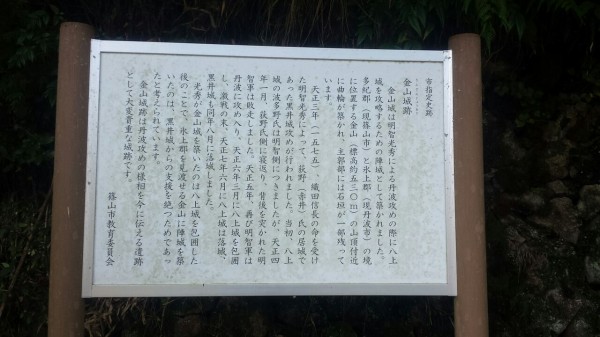 市指定史跡
金山城跡
金山城は明智光秀による丹波攻めの際に八上
城を攻略するための陣城として築かれました。
多紀郡（現篠山市）と氷上郡（現丹波市）の境
に位置する金山（標高約五三〇ｍ）の山頂付近
に曲輪が築かれ、主郭部には石垣が一部残って
います。
天正三年（一五七五）、織田信長の命を受け
た明智光秀によって、荻野（赤井）氏の居城で
あった黒井城攻めが行われました。当初、八上
城の波多野氏は明智側につきましたが、天正四
年一月、荻野氏側に寝返り、背後を突かれた明
智軍は敗走しました。天正五年、再び明智軍は
丹波に攻め入り、天正六年三月に八上城を包囲
し、激戦の末、天正七年六月に八上城は落城、
黒井城も同年八月に落城しました。
光秀が金山城を築いたのは八上城を包囲した
後のことで、氷上郡を見渡せる金山に陣城を築
いたのは、黒井城からの支援を絶つためであっ
たと考えられています。
金山城跡は丹波攻めの様相を今に伝える遺跡
として大変貴重な城跡です。
篠山市教育委員会